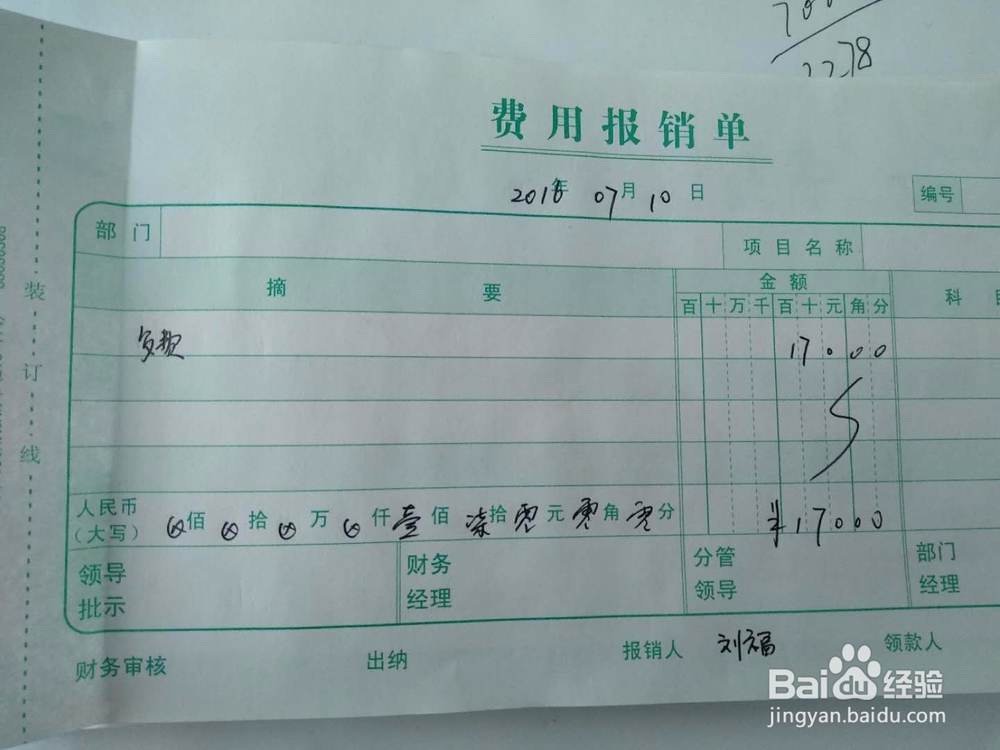 2278
费用报销单
2018年 07月 10日
编号
部门
项目名称
摘要
金额
科
百十万千百十元角分
17000
人民币
(大写)
ⓧ佰ⓧ拾ⓧ万ⓧ仟壹佰柒拾零元零角零分
¥17000
领导
批示
财务
经理
分管
领导
部门
经理
财务审核
出纳
报销人 刘福
领款人
装订线
Baidu经验
jingyan.baidu.com